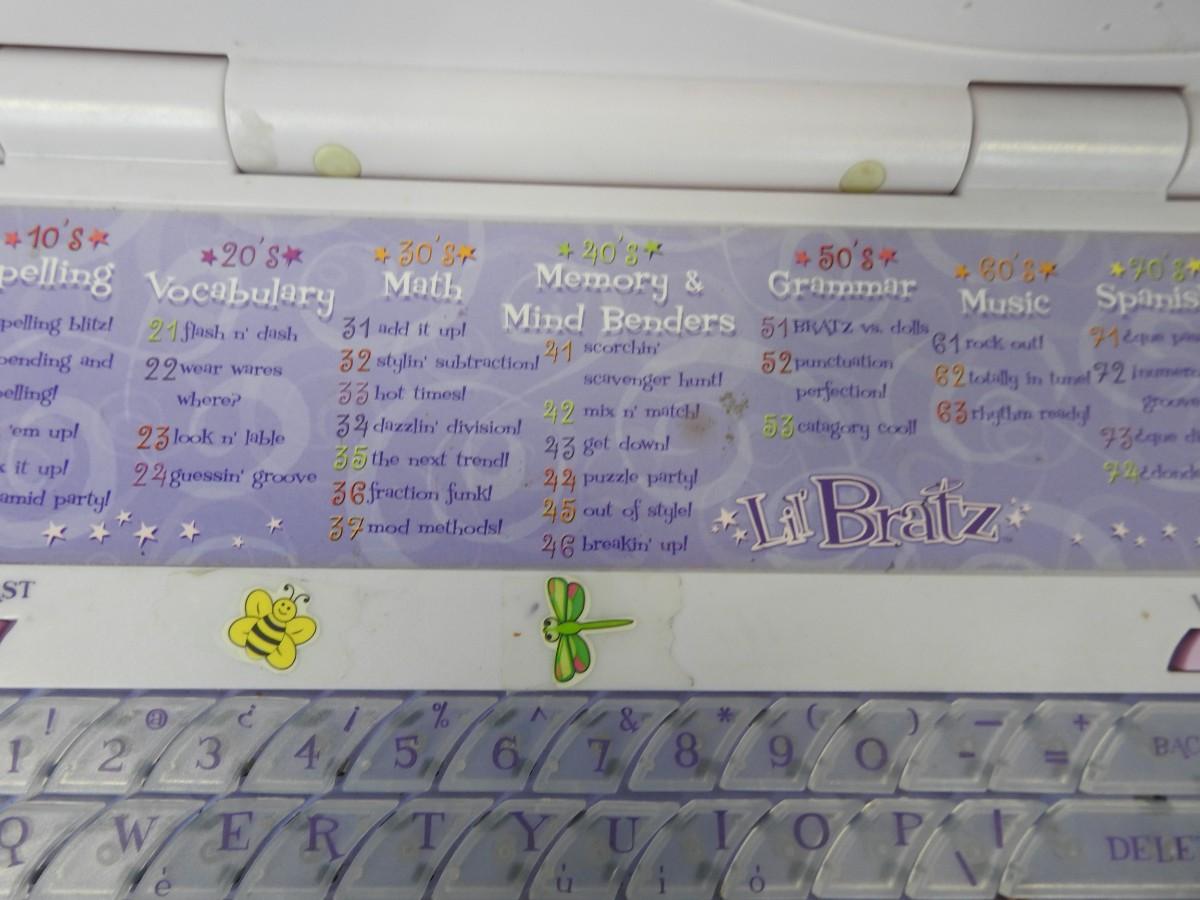 10's
pelling
pelling blitz!
pending and
pelling!
'em up!
it up!
amid party!
20's
Vocabulary
21 flash n' dash
22 wear wares
where?
23 look n' lable
24 guessin' groove
30's
Math
31 add it up!
32 stylin' subtraction!
33 hot times!
34 dazzlin' division!
35 the next trend!
36 fraction funk!
37 mod methods!
40's
Memory &
Mind Benders
41 scorchin'
scavenger hunt!
42 mix n' match!
43 get down!
44 puzzle party!
45 out of style!
46 breakin' up!
50's
Grammar
51 BRATZ vs. dolls
52 punctuation
perfection!
53 catagory cool!
60's
Music
61 rock out!
62 totally in tune!
63 rhythm ready!
70's
Spanis
71 ¿que
72
groove
73 ¿que di
74 ¿donde
Lil' Bratz
ST
! @ ¿ ¡ % ^ & * ( ) — +
1 2 3 4 5 6 7 8 9 0 - = BAC
Q W E R T Y U I O P \ | DELE
é ú í ó